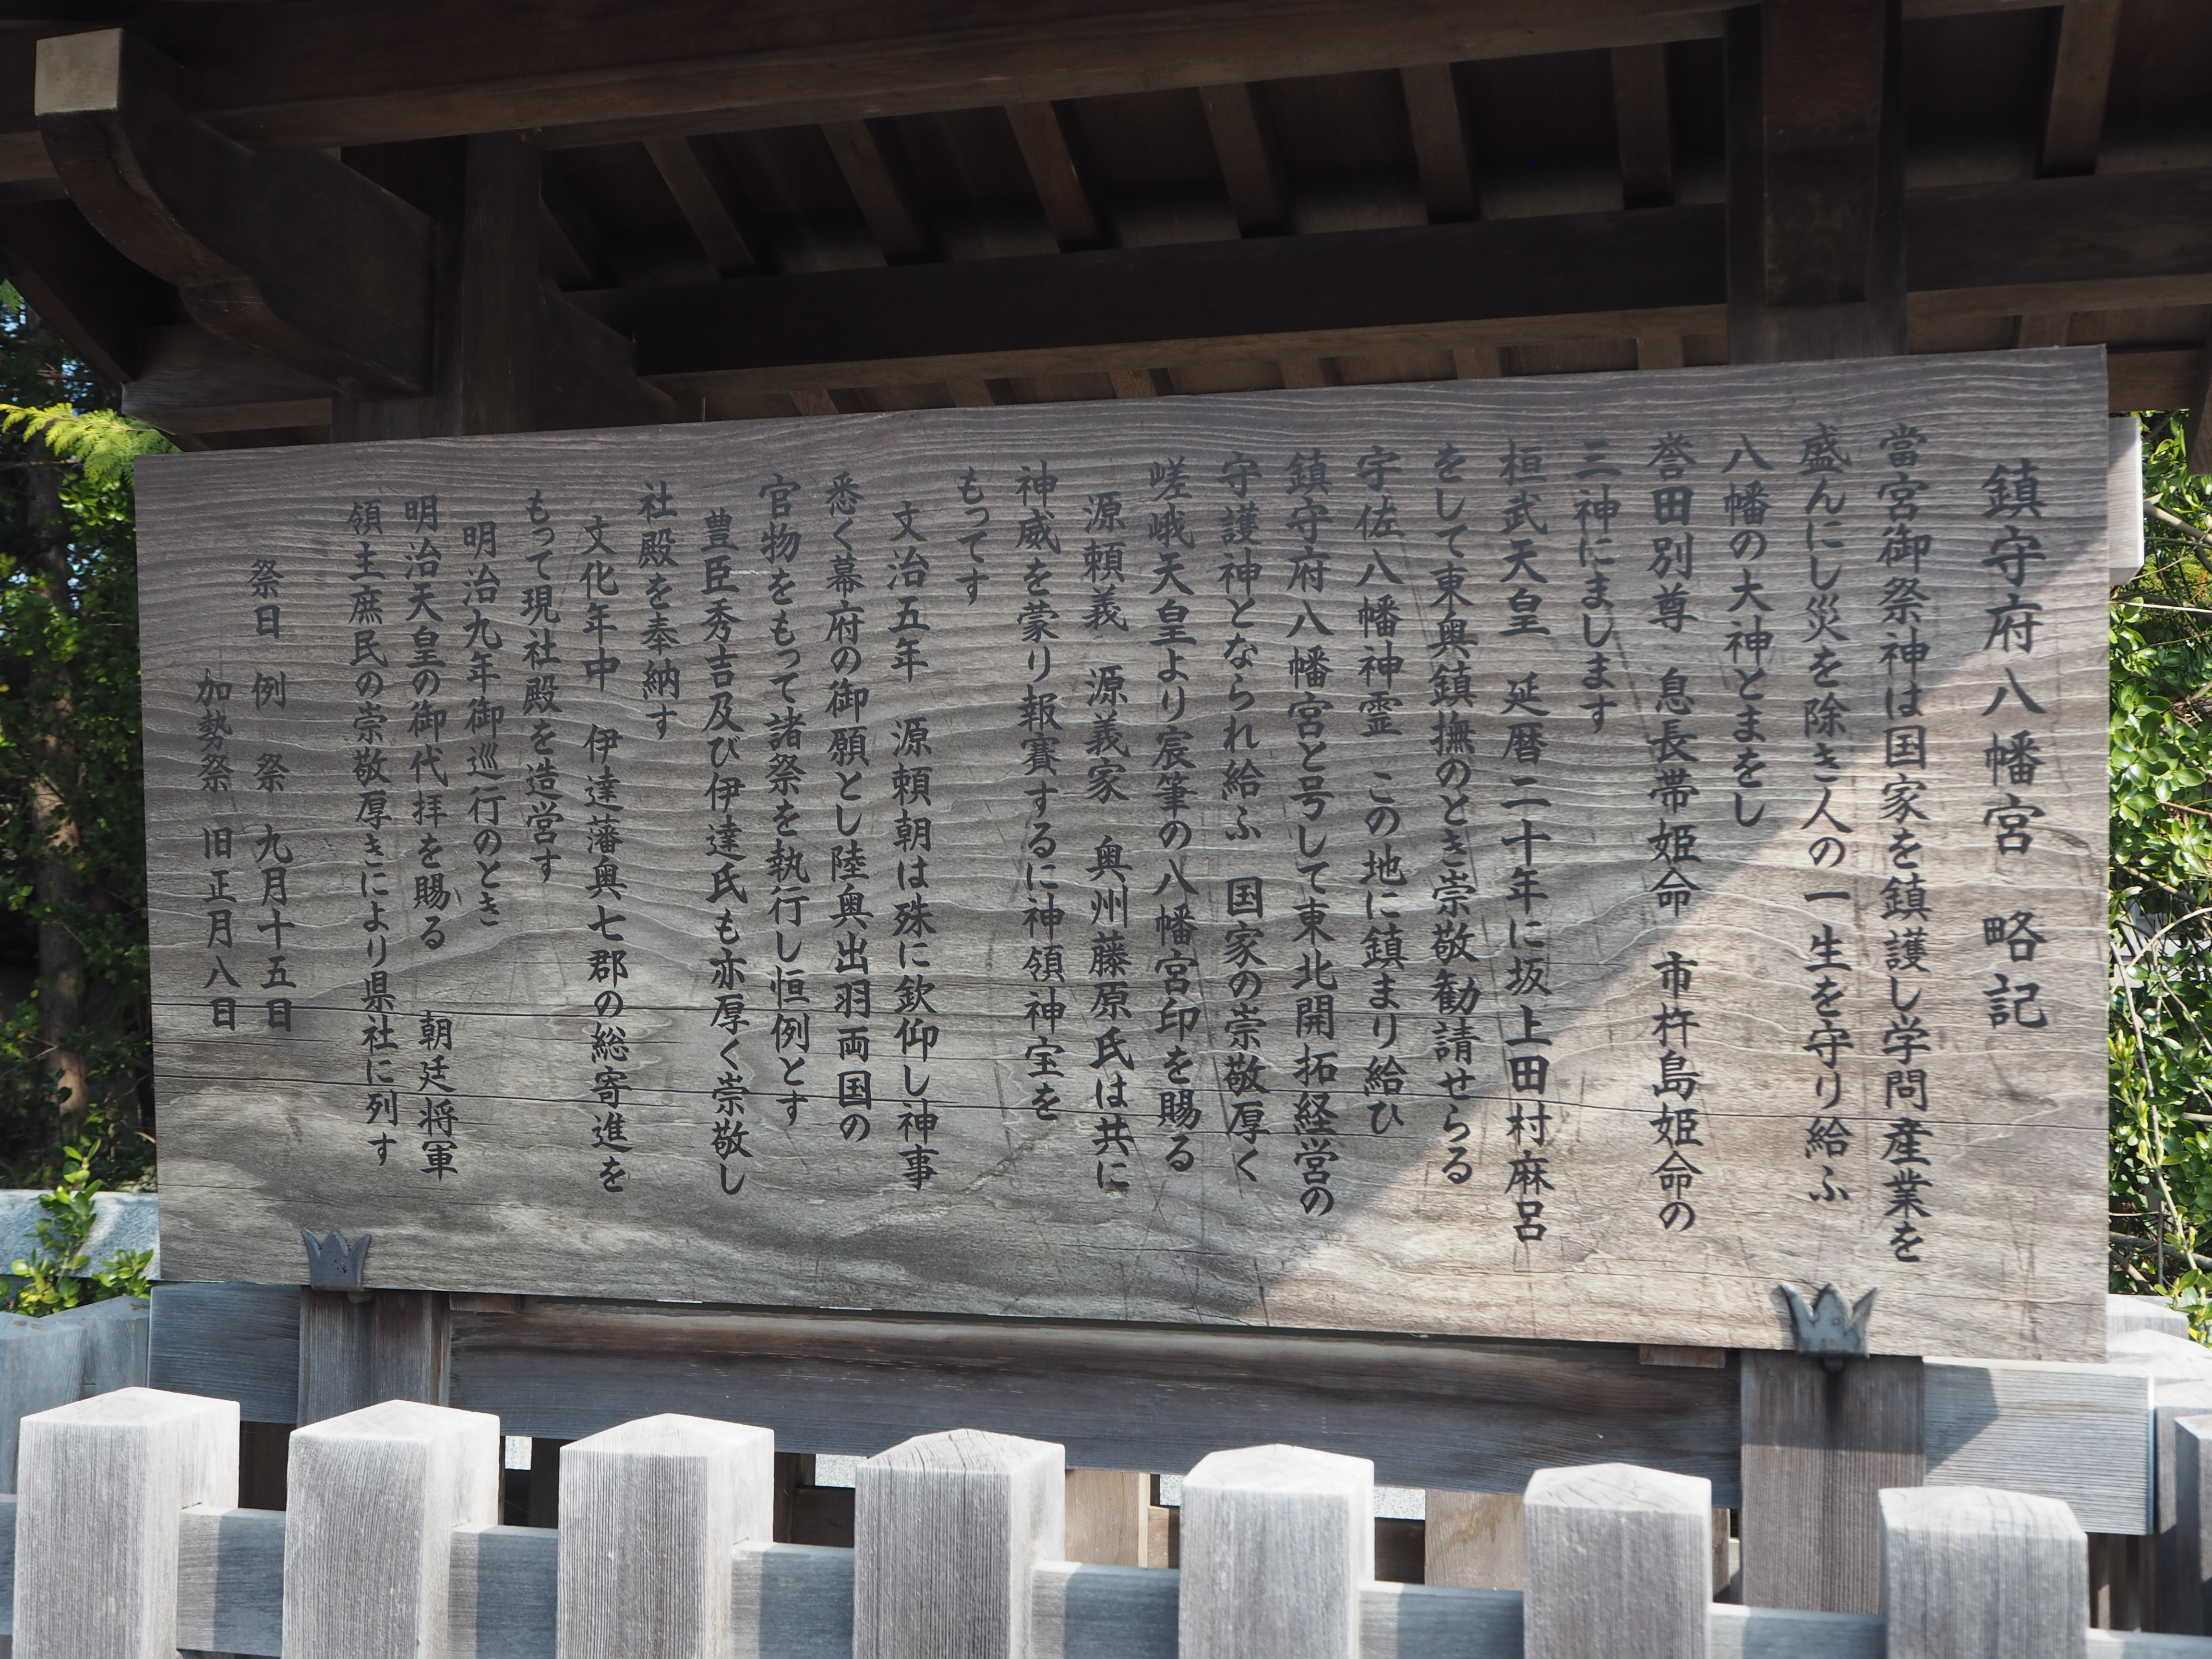 鎮守府八幡宮　略記
當宮御祭神は国家を鎮護し学問産業を
盛んにし災を除き人の一生を守り給ふ
八幡の大神とまをし
誉田別尊　息長帯姫命　市杵島姫命の
三神にまします
桓武天皇　延暦二十年に坂上田村麻呂
をして東奥鎮撫のとき崇敬勧請せらる
宇佐八幡神霊　この地に鎮まり給ひ
鎮守府八幡宮と号して東北開拓経営の
守護神となられ給ふ　国家の崇敬厚く
嵯峨天皇より宸筆の八幡宮印を賜る
源頼義　源義家　奥州藤原氏は共に
神威を蒙り報賽するに神領神宝を
もってす
文治五年　源頼朝は殊に欽仰し神事
悉く幕府の御願とし陸奥出羽両国の
官物をもって諸祭を執行し恒例とす
豊臣秀吉及び伊達氏も亦厚く崇敬し
社殿を奉納す
文化年中　伊達藩奥七郡の総寄進を
もって現社殿を造営す
明治九年御巡行のとき
明治天皇の御代拝を賜る　朝廷将軍
領主庶民の崇敬厚きにより県社に列す
祭日　例　祭　九月十五日
加勢祭　旧正月八日